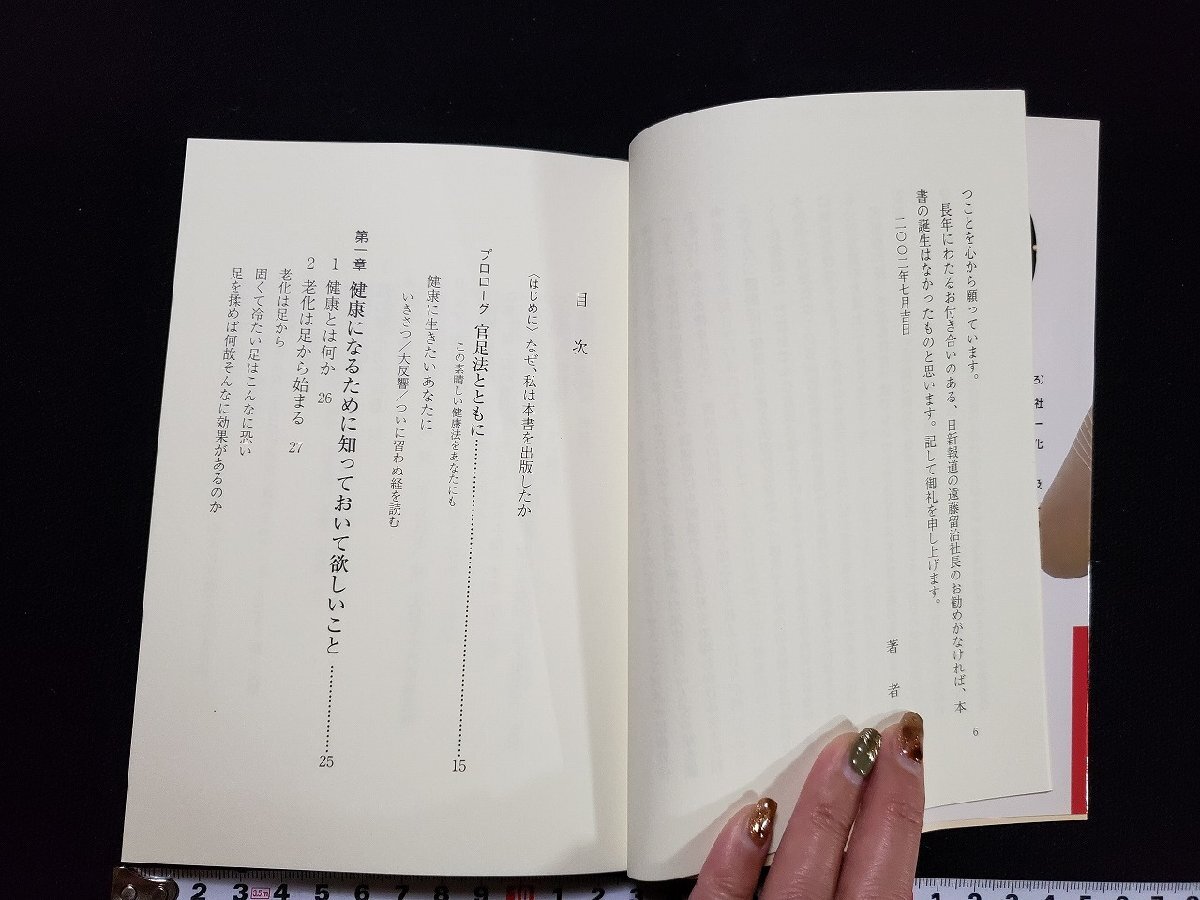 つことを心から願っています。
長年にわたるお付き合いのある、日新報道の遠藤留治社長のお勧めがなければ、本
書の誕生はなかったものと思います。記して御礼を申し上げます。
二〇〇二年七月吉日
著者
6
目次
〈はじめに〉なぜ、私は本書を出版したか
プロローグ 官足法とともに……………………………15
この素晴しい健康法をあなたにも
健康に生きたいあなたに
いきさつ／大反響／ついに習わぬ経を読む
第一章 健康になるために知っておいて欲しいこと…………25
1 健康とは何か 26
2 老化は足から始まる 27
老化は足から
固くて冷たい足はこんなに恐い
足を揉めば何故そんなに効果があるのか
社
一
化
2 3 3.5n 4 5 6 7 8 9 10 1 2 3
1 2 3 4 5 6 7 8